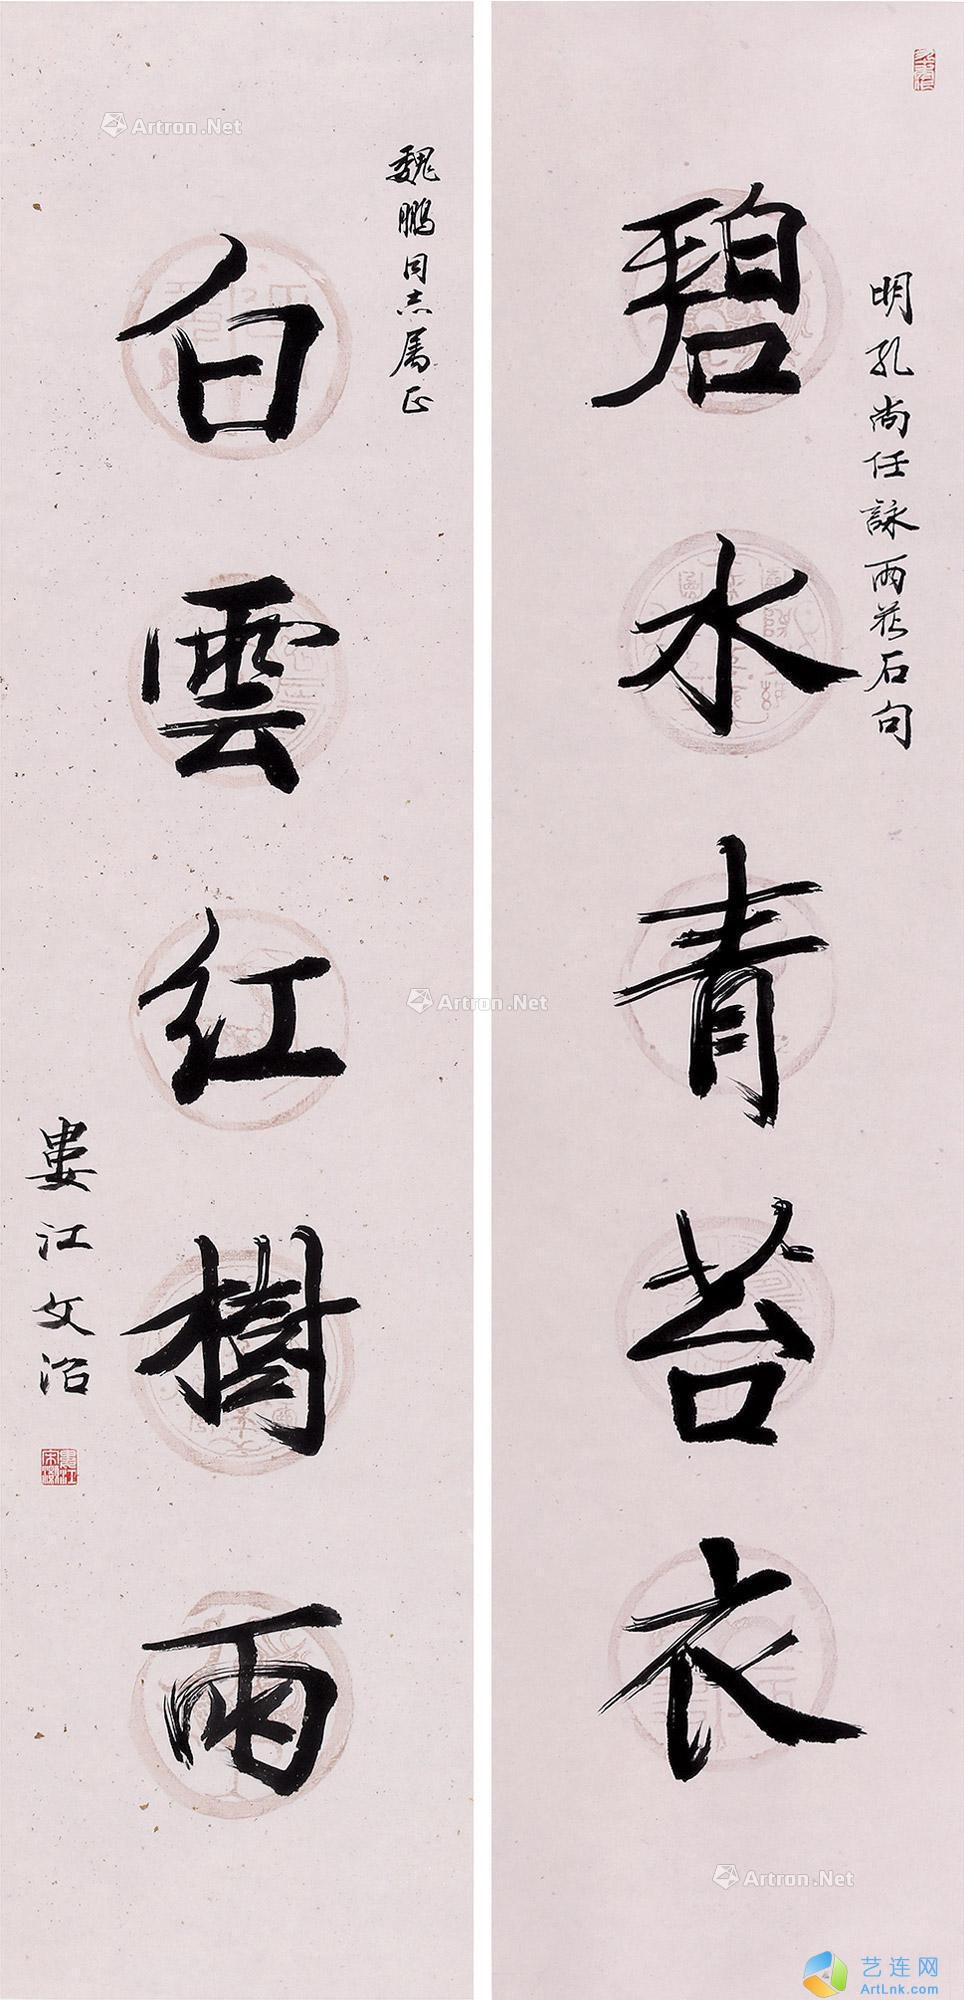 碧水青苔衣
明孔尚任詠雨花石句
魏鵬同志屬正
白雲红樹雨
婁江文治
婁江宋氏
Artron.Net
Artron.Net
Artron.Net
艺连网
ArtLnk.com